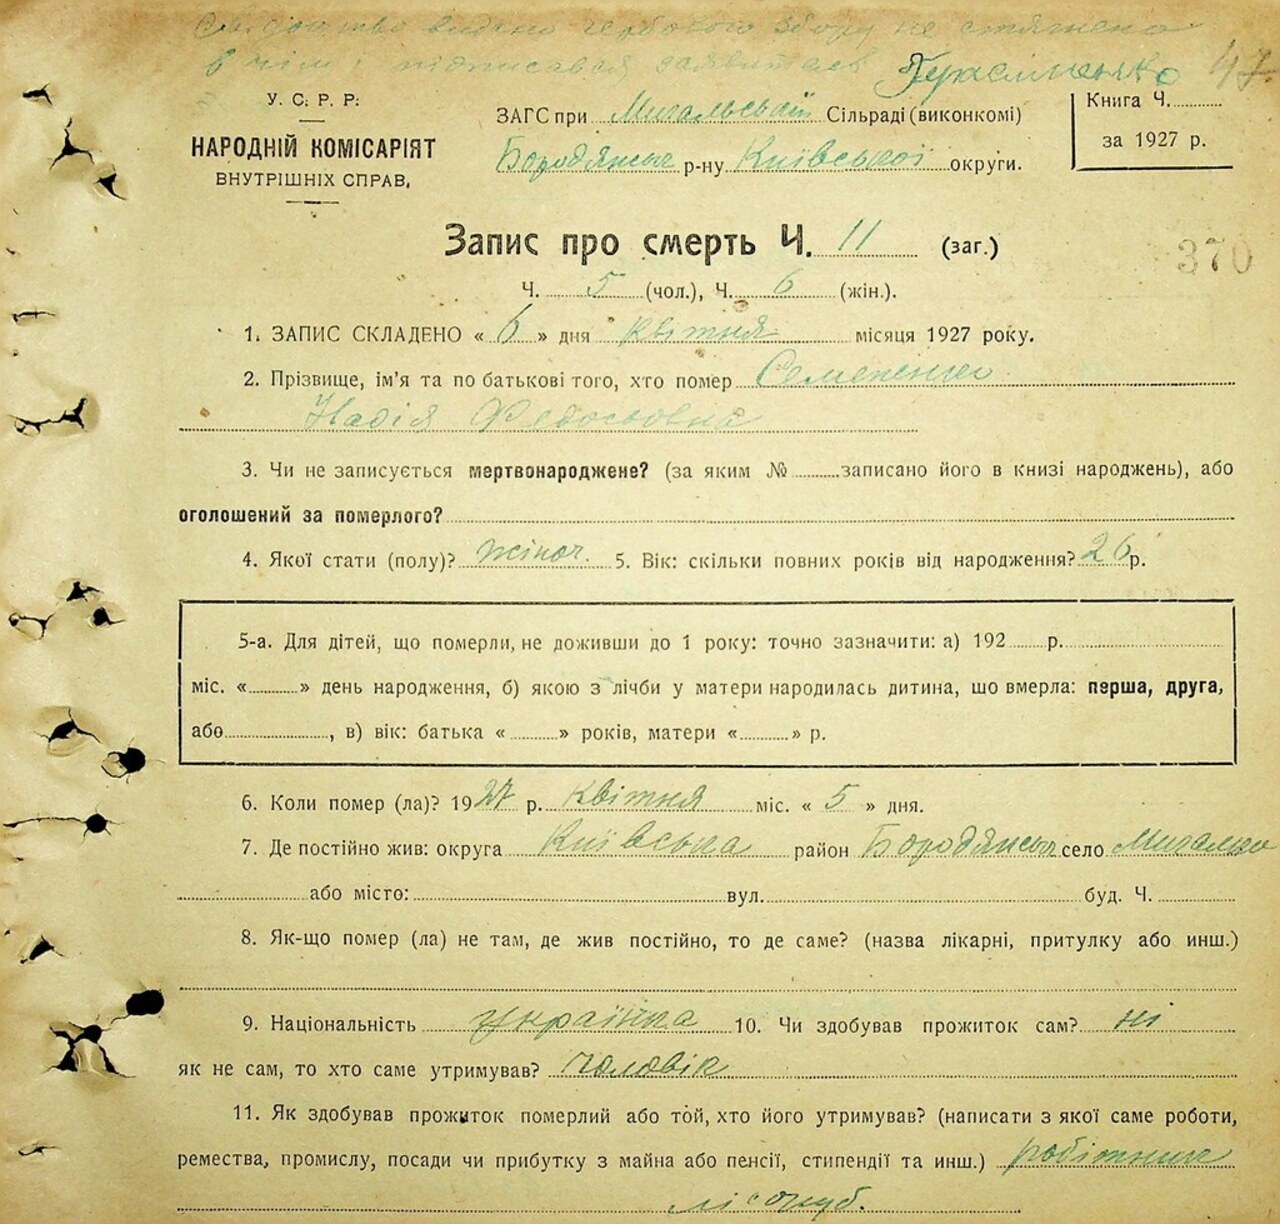 Свідоцтво видано гербового збору не стягнено
в чім і підписався заявитель Герасименко 47
У. С. Р. Р.
НАРОДНІЙ КОМІСАРІЯТ
ВНУТРІШНІХ СПРАВ,
ЗАГС при Мигальській Сільраді (виконкомі)
Бородянськ р-ну Київської округи.
Книга Ч.
за 1927 р.
Запис про смерть Ч. 11 (заг.)
370
Ч. 5 (чол.), Ч. 6 (жін.).
1. ЗАПИС СКЛАДЕНО « 6 » дня Квітня місяця 1927 року.
2. Прізвище, ім'я та по батькові того, хто помер Семененко
Надія Федосьовна
3. Чи не записується мертвонароджене? (за яким № записано його в книзі народжень), або
оголошений за померлого?
4. Якої стати (полу)? жіноч. 5. Вік: скільки повних років від народження? 26 р.
5-а. Для дітей, що померли, не доживши до 1 року: точно зазначити: а) 192 р.
міс. « » день народження, б) якою з лічби у матери народилась дитина, шо вмерла: перша, друга,
або , в) вік: батька « » років, матери « » р.
6. Коли помер (ла)? 1927 р. Квітня міс. « 5 » дня.
7. Де постійно жив: округа Київська район Бородянськ село Мигалки
або місто: вул. буд. Ч.
8. Як-що помер (ла) не там, де жив постійно, то де саме? (назва лікарні, притулку або инш.)
9. Національність українка 10. Чи здобував прожиток сам? ні
як не сам, то хто саме утримував? чоловік
11. Як здобував прожиток померлий або той, хто його утримував? (написати з якої саме роботи,
ремества, промислу, посади чи прибутку з майна або пенсії, стипендії та инш.) робітник
лісоруб.